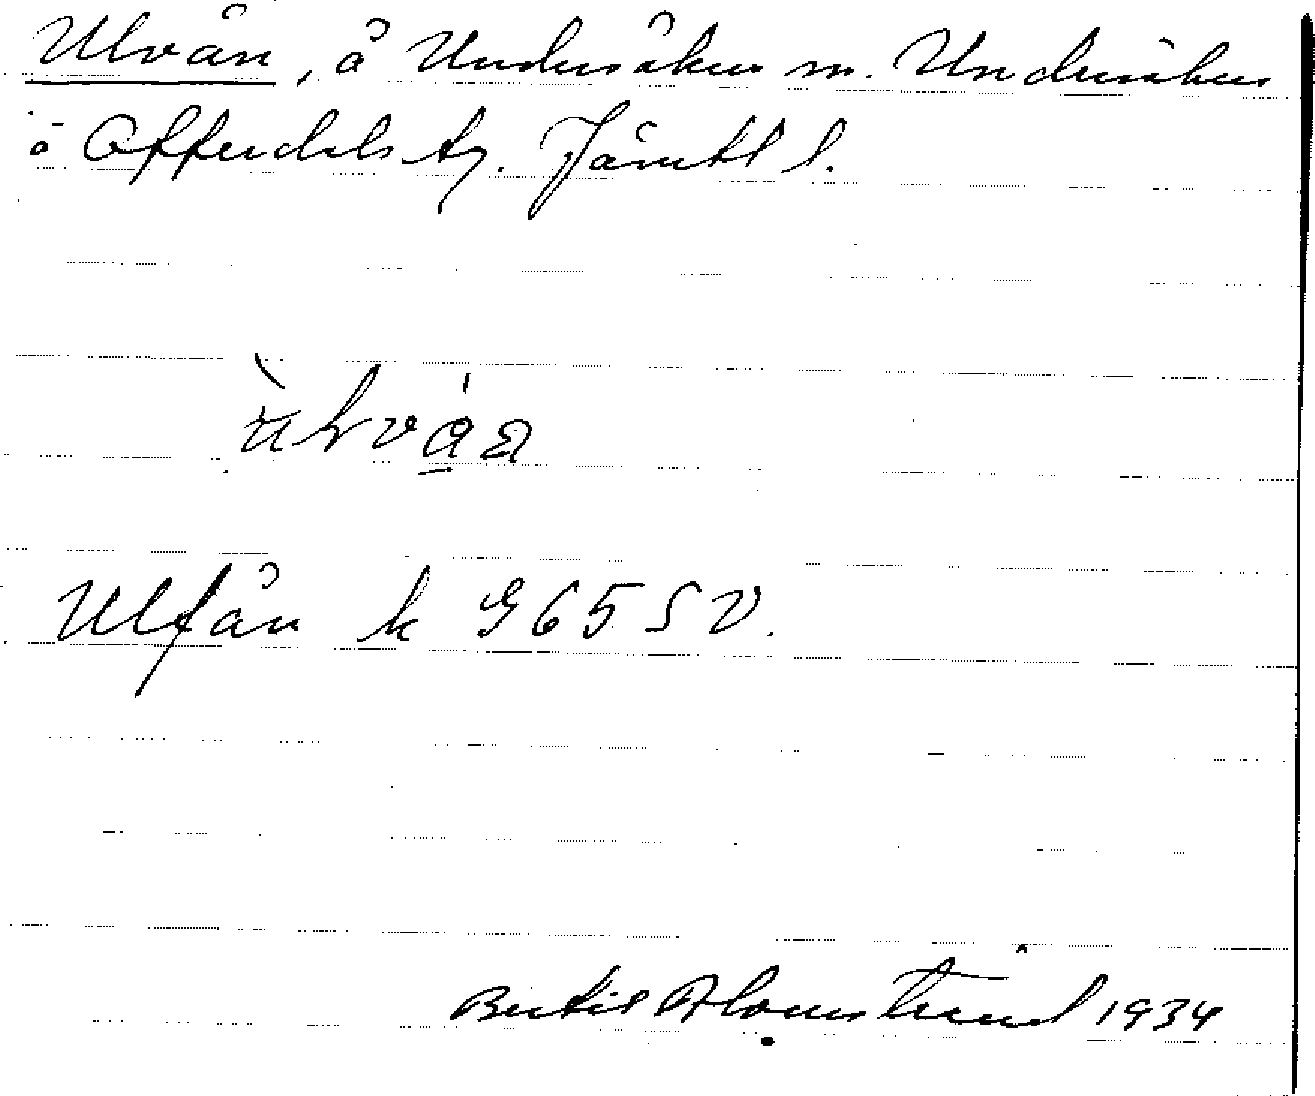 Ulvån, å Undersåkers sn. Undersåkers
o Offerdals tg. Jämtl l.
Ulfån k G65SV.
Bertil Blomstrand 1934